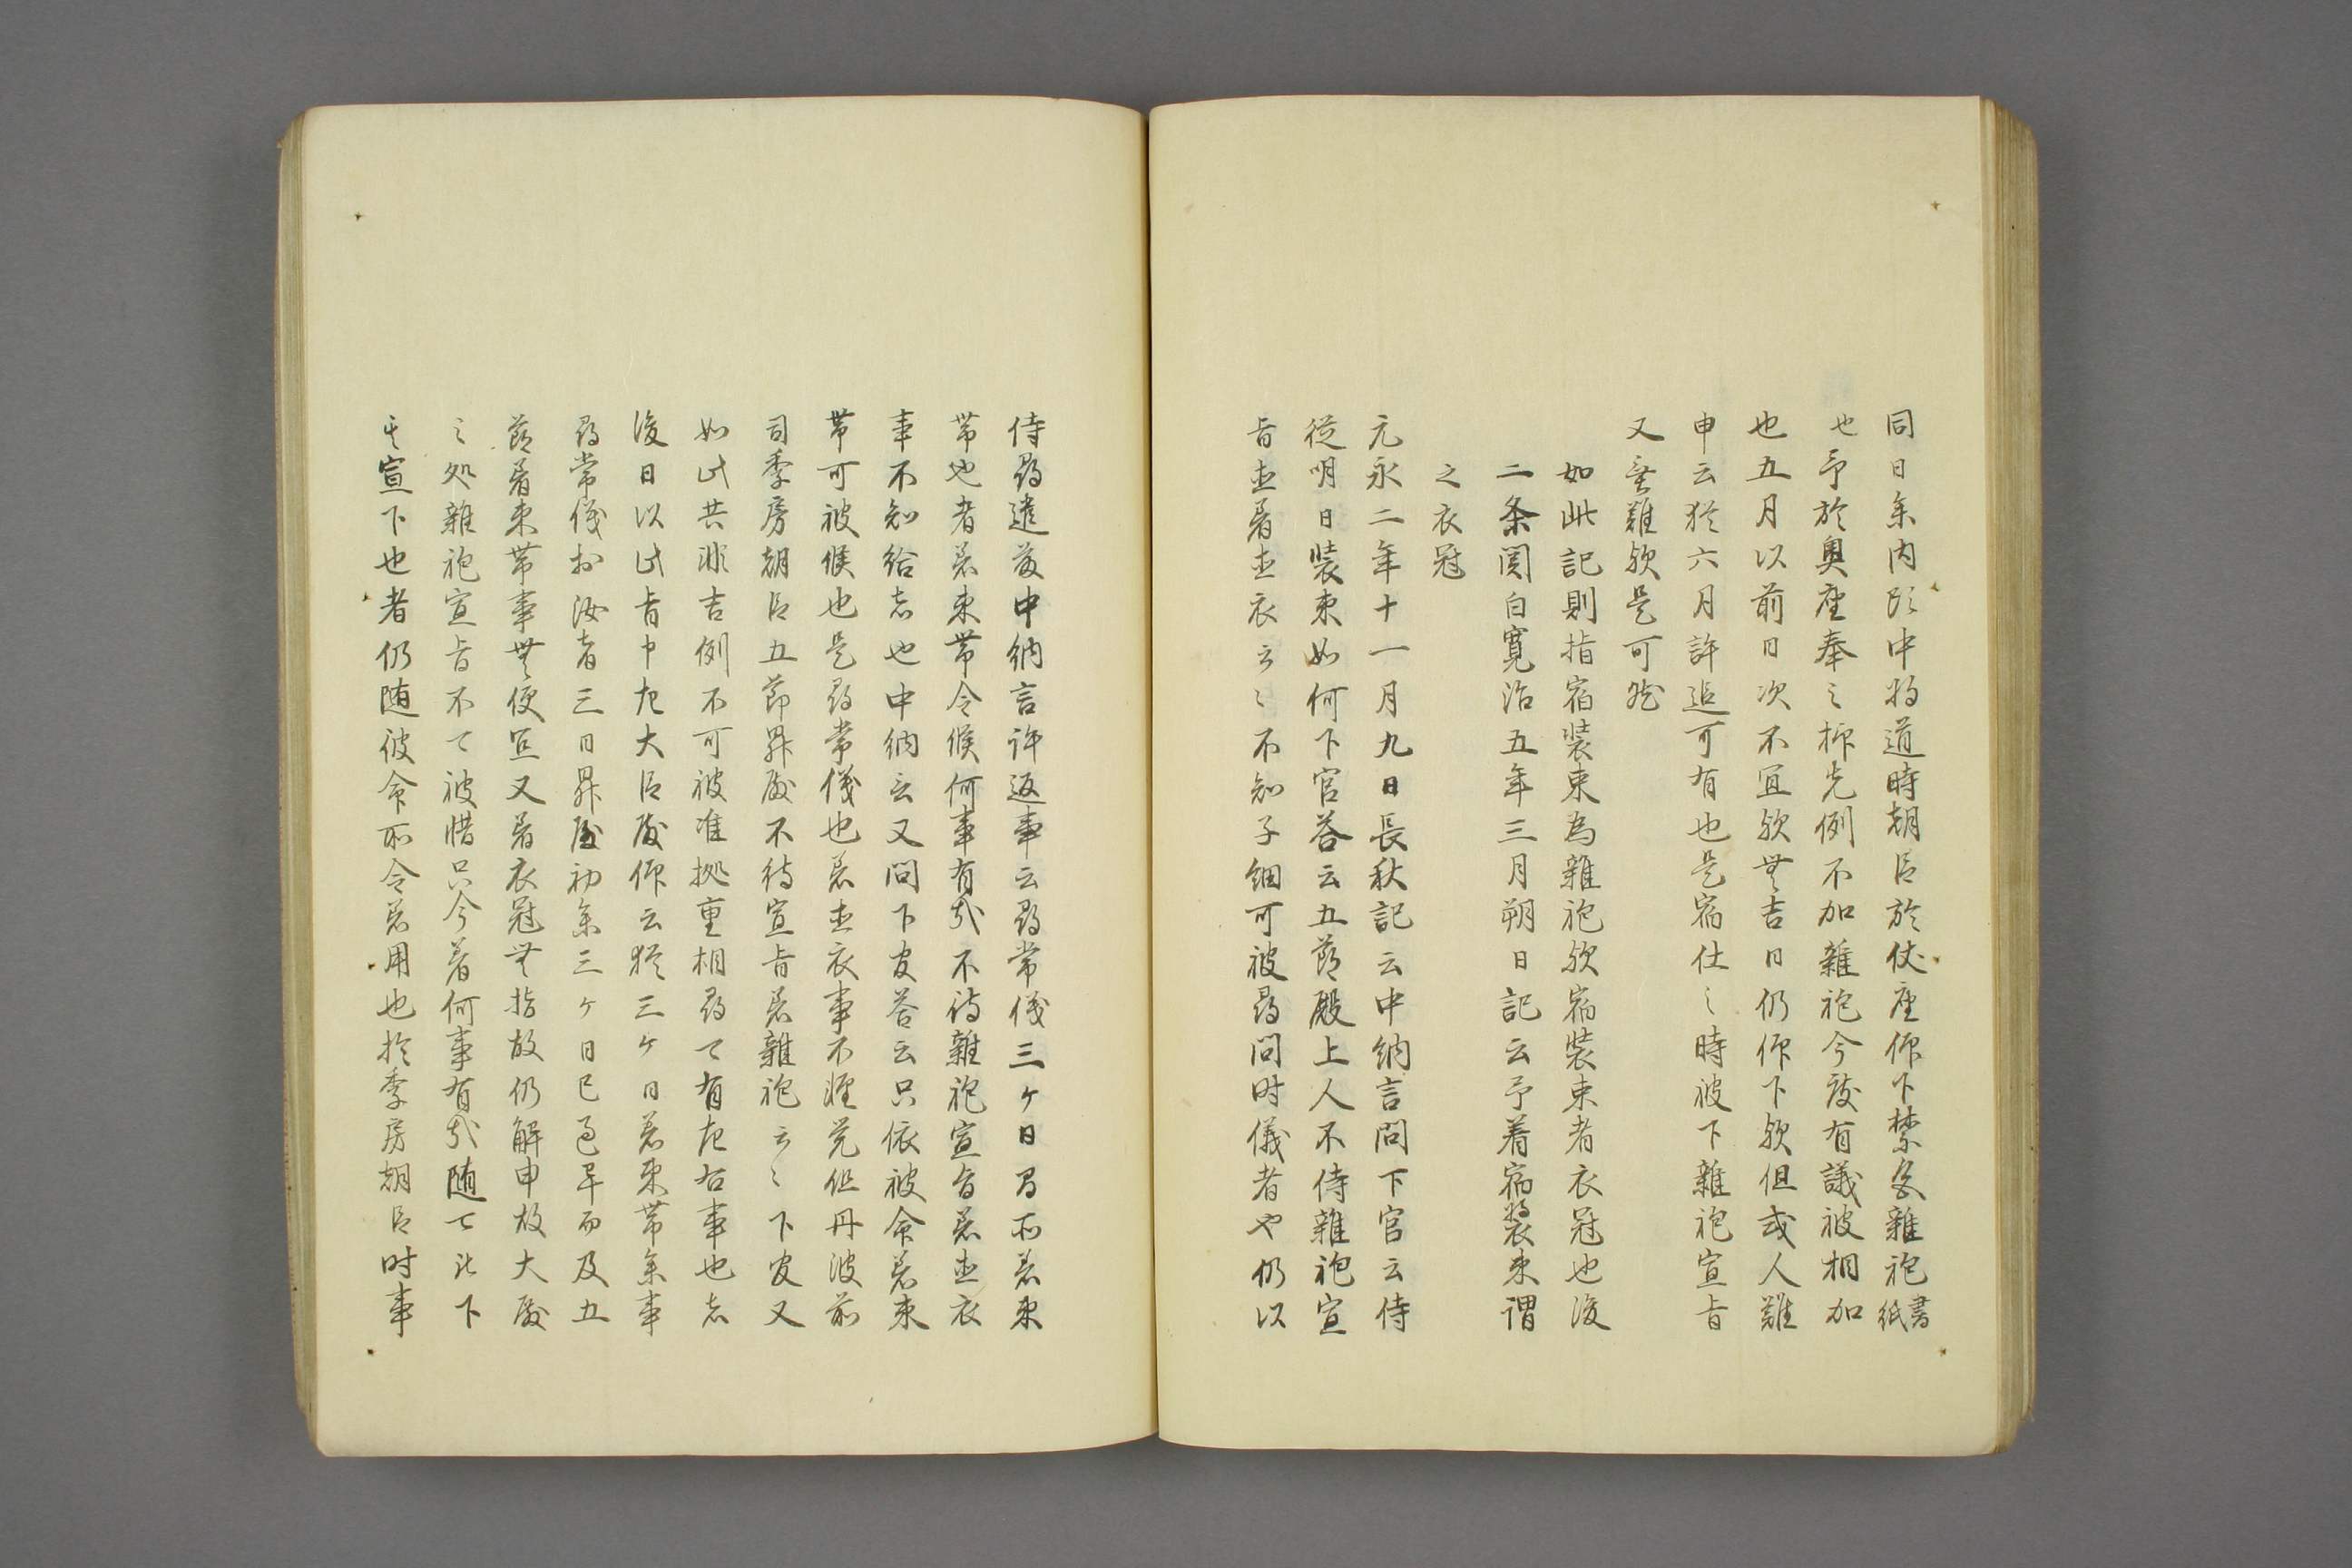 同日参内頭中将道時朝臣於仗座仰下禁色雑袍書紙
也予於奥座奉之抑先例不加雑袍今度有議被相加
也五月以前日次不宜欤無吉日仍仰下欤但或人難
申云猶六月許逗可有也是宿仕之時被下雑袍宣旨
又無難欤是可然
如此記則指宿装束為雑袍欤宿装束者衣冠也後
二条関白寛治五年三月朔日記云予着宿装束謂
之衣冠
元永二年十一月九日長秋記云中納言問下官云侍
従明日装束如何下官答云五節殿上人不待雑袍宣
旨直着直衣云々不知子細可被尋問時儀者や仍以
侍尋遣按中納言許返事云尋常儀三ヶ日間所着束
帯也者着束帯令候何事有哉不待雑袍宣旨着直衣
事不知給者也中納云又問下官答云只依被命着束
帯可被候也是尋常儀也着直衣事不軽覚但丹波前
司季房朝臣五節昇殿不待宣旨着雑袍云々下官又
如此共非吉例不可被准拠重相尋て有左右事也者
後日以此旨申左大臣殿仰云猶三ヶ日着束帯参事
尋常儀於汝者三日昇殿初参三ヶ日已過早而及五
節着束帯事無便宜又着衣冠無指故仍解申故大殿
之処雑袍宣旨不て被惜只今着何事有哉随て此下
其宣下也者仍随彼命所令着用也於季房朝臣時事